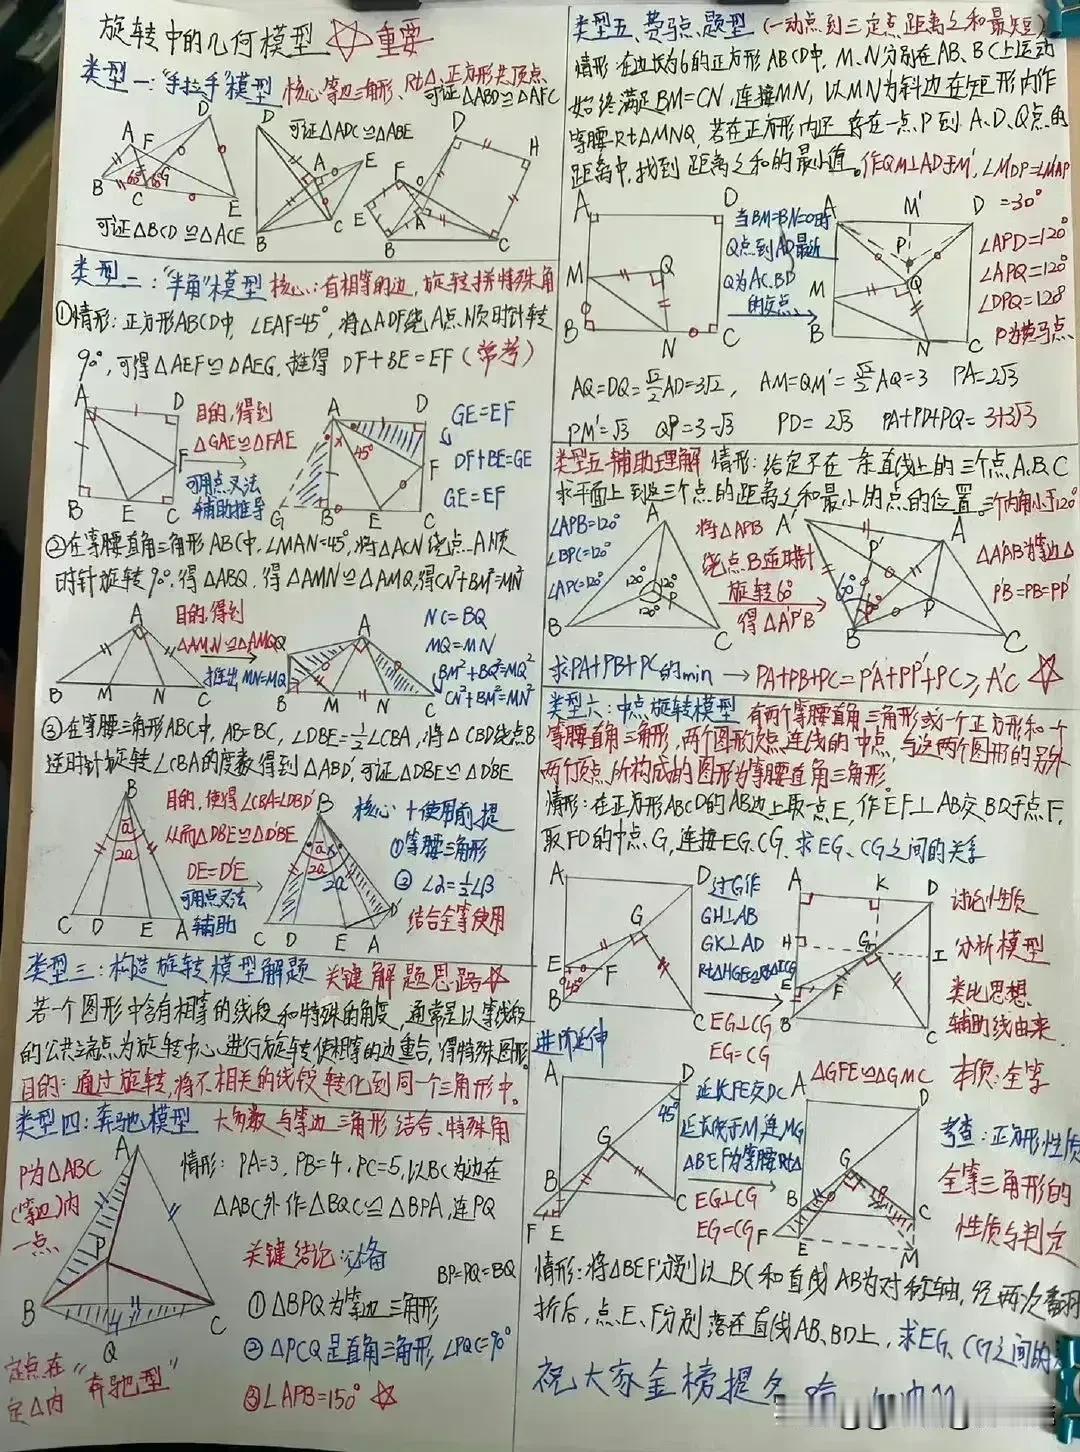 旋转中的几何模型 ☆重要
类型一:"手拉手"模型 核心:等边三角形、Rt△、正方形共顶点
可证△ABD≌△AFC
可证△ADC≌△ABE
A F D B C G E 60° 60°
D A E B C
D H F E A B C
可证△BCD≌△ACE
类型二:"半角"模型 核心:有相等的边,旋转拼特殊角
①情形:正方形ABCD中,∠EAF=45°,将△ADF绕A点顺时针转
90°,可得△AEF≌△AEG,推得 DF+BE=EF(常考)
A D F B E C
目的,得到
△GAE≌△FAE
可用点叉法
辅助推导
A D 45° F G B E C
GE=EF
DF+BE=GE
GE=EF
②在等腰直角三角形ABC中,∠MAN=45°,将△ACN绕点A顺
时针旋转90°,得△ABQ,得△AMN≌△AMQ,得CN²+BM²=MN²
A B M N C
目的,得到
△AMN≌△AMQ
推出MN=MQ
Q A B M N C
NC=BQ
MQ=MN
BM²+BQ²=MQ²
CN²+BM²=MN²
③在等腰三角形ABC中,AB=BC,∠DBE=½∠CBA,将△CBD绕点B
逆时针旋转∠CBA的度数得到△ABD',可证△DBE≌△D'BE
B a 2a C D E A
目的,使得∠CBA=∠DBD'
从而△DBE≌△D'BE
DE=D'E
可用点叉法
辅助
B a 2a 2a C D E A D'
核心+使用前提
①等腰三角形
②∠α=½∠β
结合全等使用
类型三:构造旋转模型解题 关键解题思路☆
若一个图形中含有相等的线段和特殊的角度,通常是以等线段
的公共端点为旋转中心进行旋转使相等的边重合,得特殊图形
目的:通过旋转,将不相关的线段转化到同一个三角形中。
类型四:奔驰模型 大多数与等边三角形结合、特殊角
P为△ABC
(等边)内
一点
A P B C Q
情形:PA=3,PB=4,PC=5,以BC为边在
△ABC外作△BQC≌△BPA,连PQ
关键结论 必备
BP=PQ=BQ
①△BPQ为等边三角形
②△PCQ是直角三角形,∠PQC=90°
③∠APB=150° ☆
定点在
定△内
"奔驰型"
类型五、费马点题型(一动点到三定点距离之和最短)
情形:在边长为6的正方形ABCD中,M、N分别在AB、BC上运动
始终满足BM=CN,连接MN,以MN为斜边在矩形内作
等腰Rt△MNQ,若在正方形内还存在一点P到A、D、Q点的
距离中,找到距离之和的最小值。作QM⊥AD于M',∠M'DP=∠M'AP
=30°
A D M Q B N C
当BM=BN=0时
Q点到AD最近
Q为AC、BD
的交点
A M' D P Q M B N C
∠APD=120°
∠APQ=120°
∠DPQ=128
P为费马点
AQ=DQ=√2/2AD=3√2, AM=QM'=√2/2AQ=3 PA=2√3
PM'=√3 QP=3-√3 PD=2√3 PA+PD+PQ=3+3√3
类型五-辅助理解 情形:给定不在一条直线上的三个点A、B、C
求平面上到这三个点的距离之和最小的点的位置。三个内角小于120°
∠APB=120°
∠BPC=120°
∠APC=120°
A 120° 120° 120° P B C
将△APB
绕点B逆时针
旋转60°
得△A'P'B
A' P' A 60° 60° P B C
△A'AB为等边△
P'B=PB=PP'
求PA+PB+PC的min → PA+PB+PC=P'A'+PP'+PC≥A'C ☆
类型六:中点旋转模型 有两个等腰直角三角形或一个正方形和一个
等腰直角三角形,两个图形顶点连线的中点,与这两个图形的另外
两个顶点所构成的图形为等腰直角三角形。
情形:在正方形ABCD的AB边上取一点E,作EF⊥AB交BD于点F,
取FD的中点G,连接EG、CG.求EG、CG之间的关系
A D G E F 45° B C
过G作
GH⊥AB
GK⊥AD
Rt△HGE≌Rt△ICG
EG⊥CG
EG=CG
A K D H G I E F B C
讨论性质
分析模型
类比思想
辅助线由来
进阶延伸
A D 45° G B C F E
延长FE交DC
延长线于M,连MG
△BEF为等腰Rt△
EG⊥CG
EG=CG
△GFE≌△GMC
A D G B C F E M
本质:全等
考查:正方形性质
全等三角形的
性质与判定
情形:将△BEF分别以BC和直线AB为对称轴,经两次翻
折后,点E、F分别落在直线AB、BD上,求EG、CG之间的
祝大家金榜提名